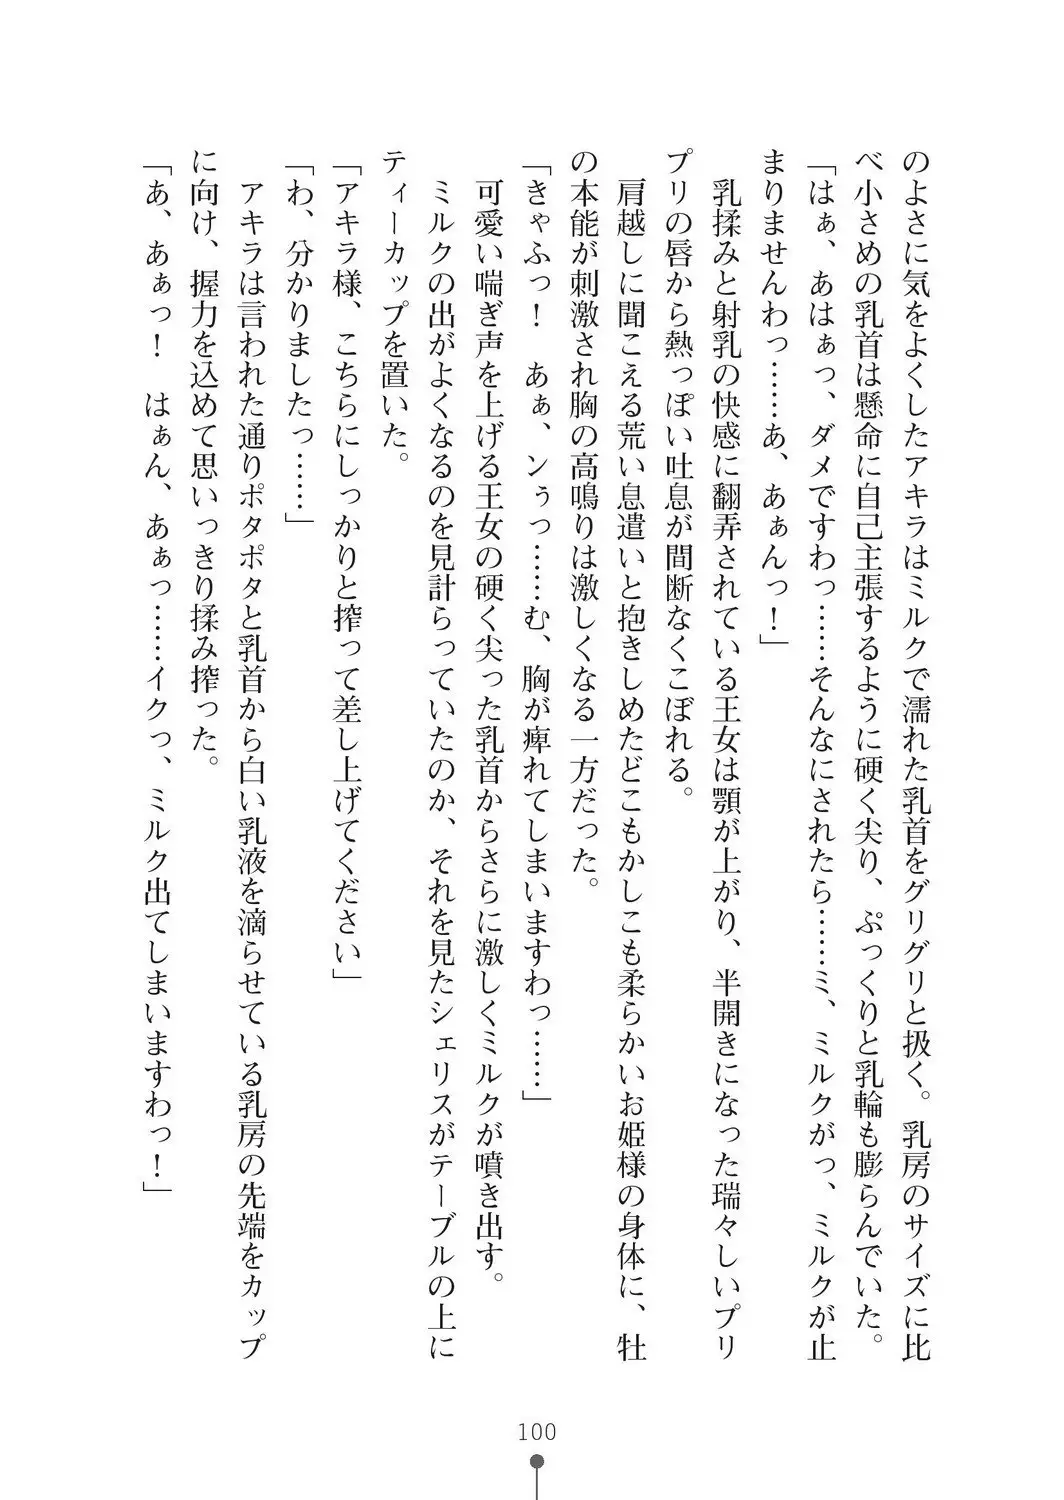 のよさに気をよくしたアキラはミルクで濡れた乳首をグリグリと扱く。乳房のサイズに比
べ小さめの乳首は懸命に自己主張するように硬く尖り、ぷっくりと乳輪も膨らんでいた。
「はぁ、あはぁっ、ダメですわっ……そんなにされたら……ミ、ミルクがっ、ミルクが止
まりませんわっ……あ、あぁんっ！」
　乳揉みと射乳の快感に翻弄されている王女は顎が上がり、半開きになった瑞々しいプリ
プリの唇から熱っぽい吐息が間断なくこぼれる。
　肩越しに聞こえる荒い息遣いと抱きしめたどこもかしこも柔らかいお姫様の身体に、牡
の本能が刺激され胸の高鳴りは激しくなる一方だった。
「きゃふっ！　あぁ、ンぅっ……む、胸が痺れてしまいますわっ……」
　可愛い喘ぎ声を上げる王女の硬く尖った乳首からさらに激しくミルクが噴き出す。
　ミルクの出がよくなるのを見計らっていたのか、それを見たシェリスがテーブルの上に
ティーカップを置いた。
「アキラ様、こちらにしっかりと搾って差し上げてください」
「わ、分かりましたっ……」
　アキラは言われた通りポタポタと乳首から白い乳液を滴らせている乳房の先端をカップ
に向け、握力を込めて思いっきり揉み搾った。
「あ、あぁっ！　はぁん、あぁっ……イクっ、ミルク出てしまいますわっ！」
100